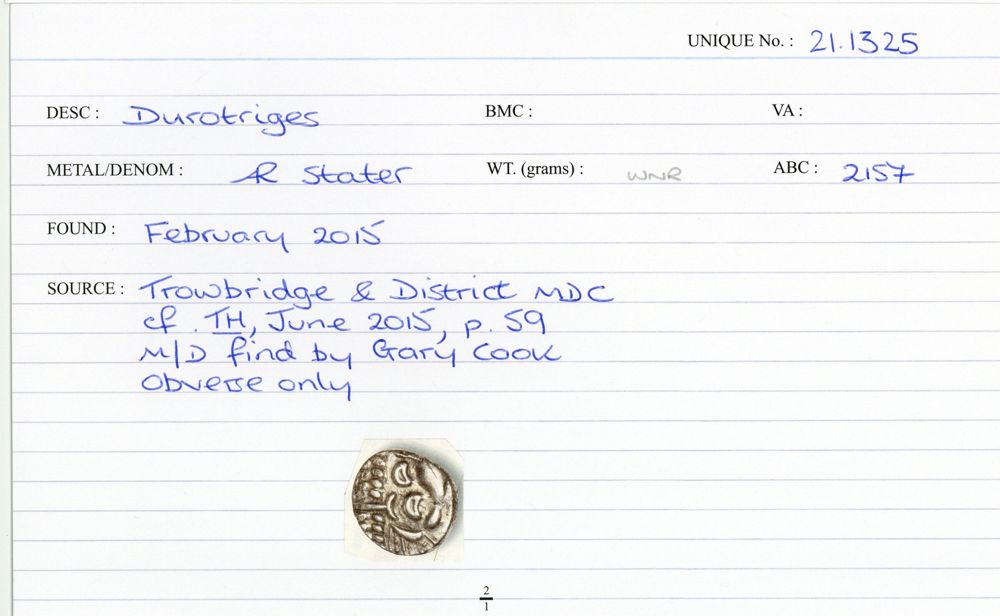 UNIQUE No. : 21.1325
DESC : Durotriges BMC : VA :
METAL/DENOM : AR Stater WT. (grams) : WNR ABC : 2157
FOUND : February 2015
SOURCE : Trowbridge & District MDC
cf. TH, June 2015, p. 59
M/D find by Gary Cook
Obverse only
2
1